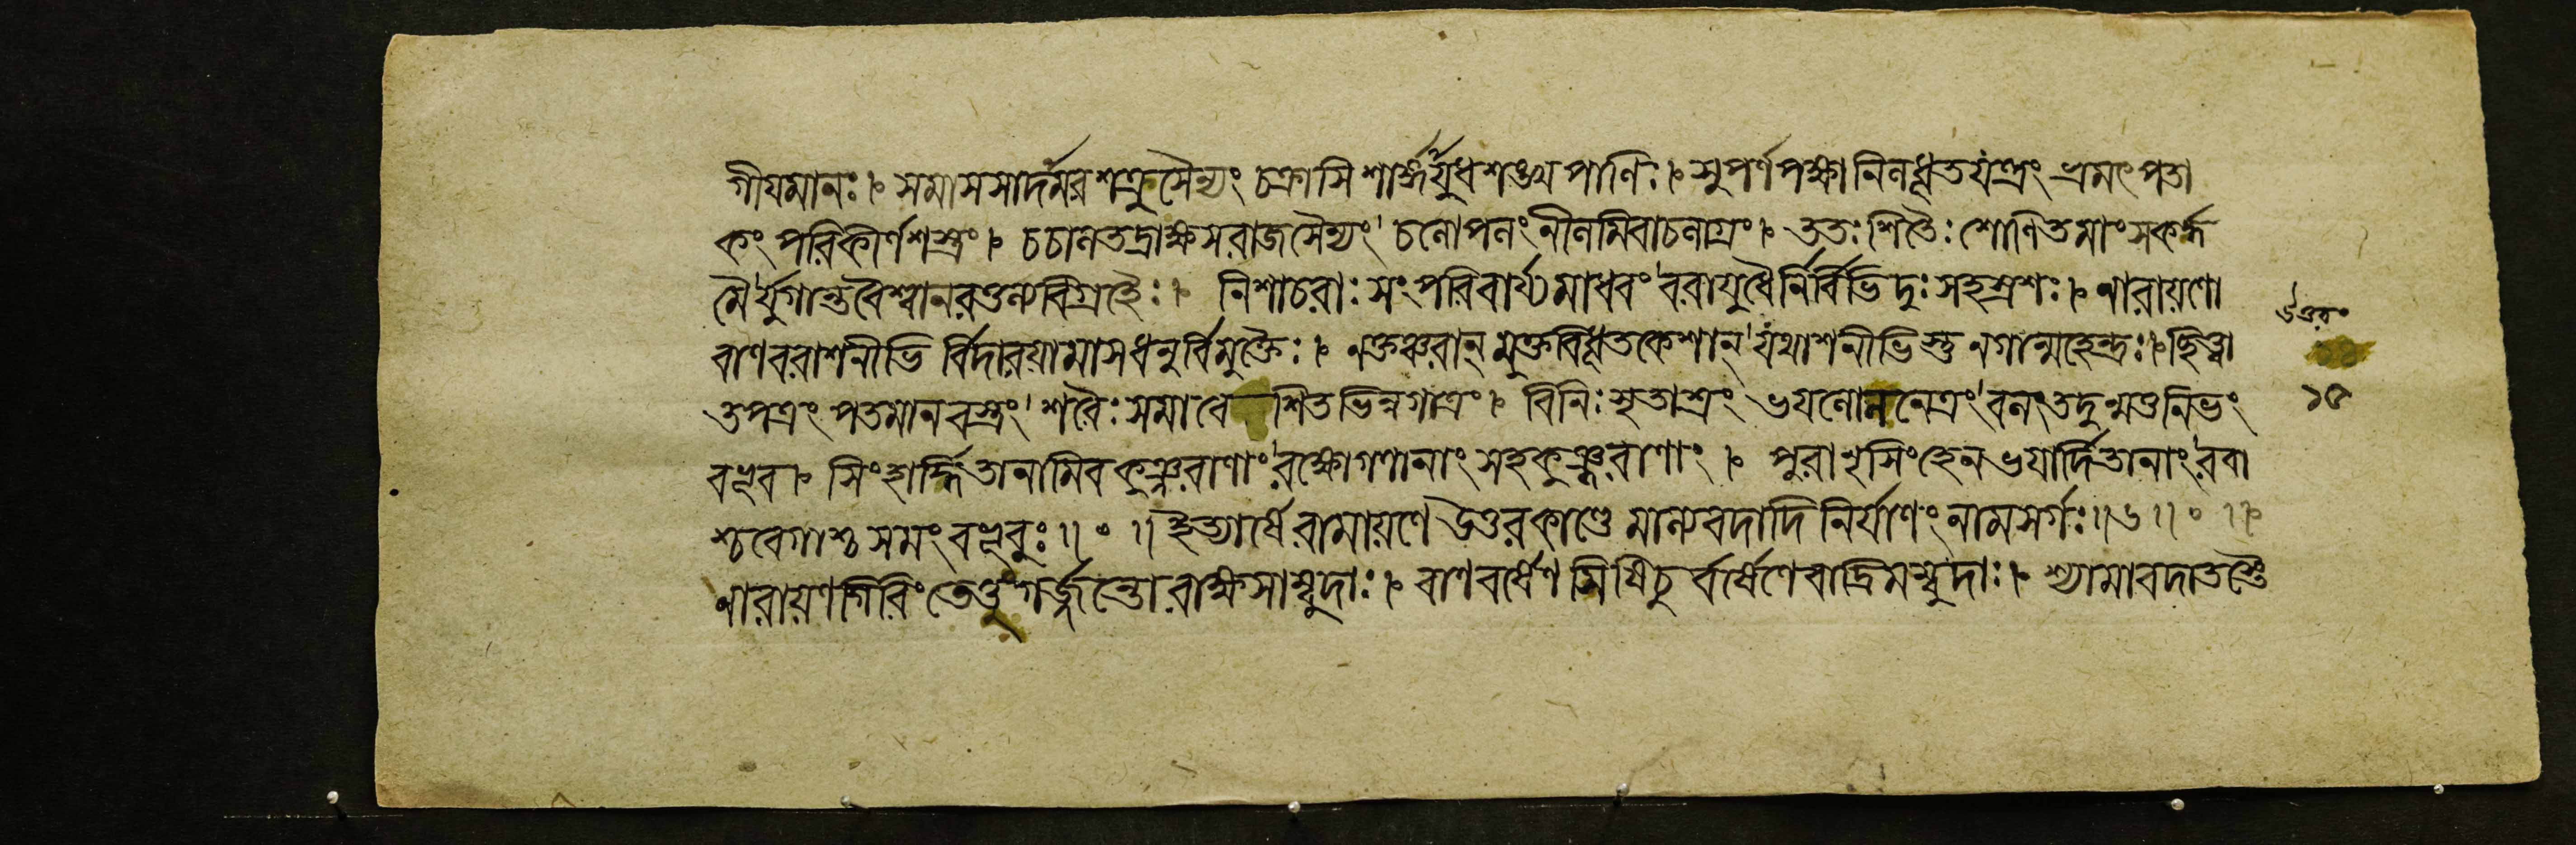 গীয়মানঃ। সমাসসাদর্মরশত্রুসৈন্যং চক্রাসিশার্ঙ্গর্যুধশঙ্খপাণিঃ। সুপর্ণপক্ষানিনধূতযংত্রং ভ্রমৎপতা
কং পরিকীর্ণশস্ত্রং। চচানতদ্রাক্ষসরাজসৈন্যং চনোপনংনীনমিবাচনাগ্রং। ততঃশিতৈঃ শোণিতমাংসকর্দ্দ
মৈর্যুগান্তবৈশ্বানরতুল্যবিগ্রহৈঃ। নিশাচরাঃ সংপরিবার্য্যমাধবং বরায়ুধৈর্নির্বিভিদুঃ সহস্রশঃ। নারায়ণো
বাণবরাশনীভি র্বিদারয়ামাসধনুর্বিমুক্তৈঃ। নক্তঞ্চরান্মুক্তবিধূতকেশান্যথাশনীভিস্তুনগান্মহেন্দ্রঃ। ছিত্বা
তপত্রং পতমানবস্ত্রং শরৈঃ সমাবেশিতভিন্নগাত্রং। বিনিঃসৃতাস্রং ভয়নোননেত্রং বনংতদুন্মত্তনিভং
বভূব। সিংহার্দ্দিতানামিবকুঞ্জরাণাং রক্ষোগণানাং সহকুঞ্জরাণাং। পুরাণসিংহেনভয়ার্দিতানাং রবা
শ্চবেগাশ্চসমংবভূবুঃ॥ ০ ॥ ইত্যার্ষে রামায়ণে উত্তরকাণ্ডে মাল্যবদাদিনির্যাণংনামসর্গঃ॥৬॥ ০ ॥
নারায়ণগিরিংতেতুং গর্জ্জন্তোরাক্ষসাম্বুদাঃ। বাণবর্ষেণসিষিচুর্বর্ষেণেবাদ্রিমম্বুদাঃ। শ্যামাবদাতস্তৈ
উত্তর০
১৫